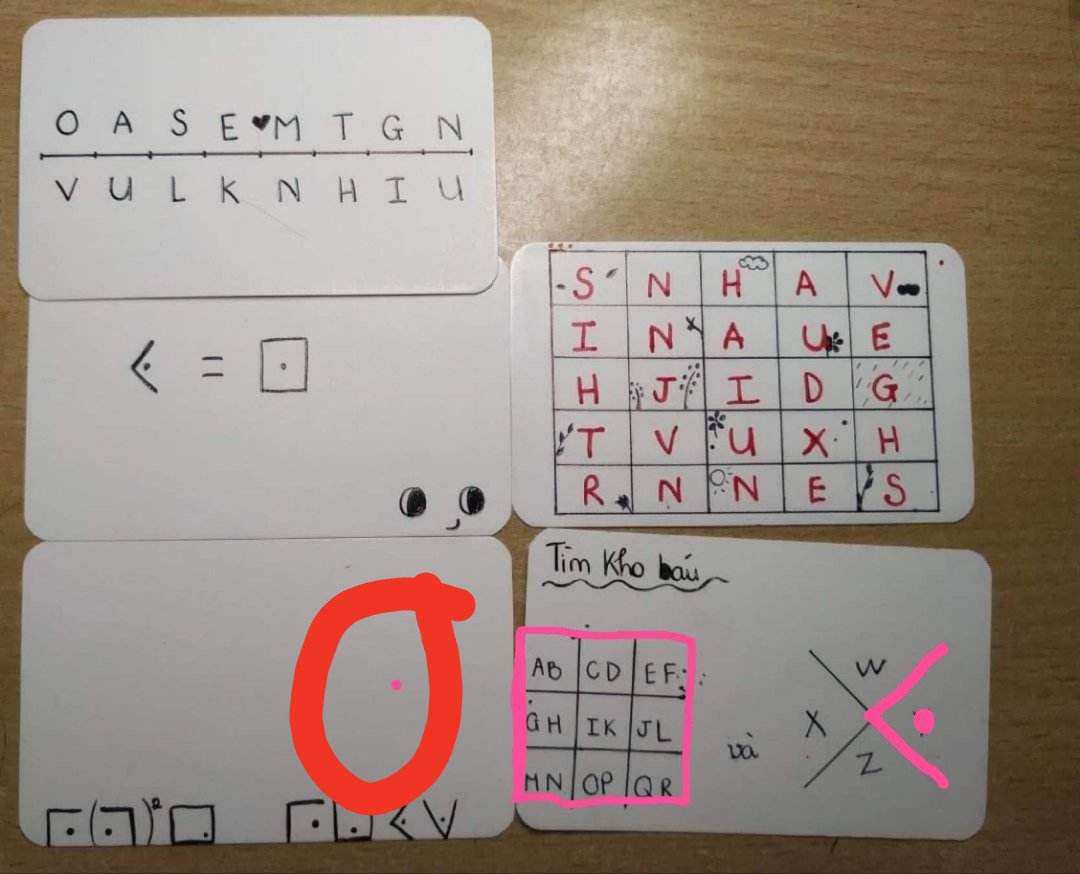 O A S E ♥ M T G N
V U L K N H I U
=
S N H A V
I N A U E
H J I D G
T V U X H
R N N E S
Tìm kho báu
AB CD EF
GH IK JL
MN OP QR
và
W
X
Z
( )²